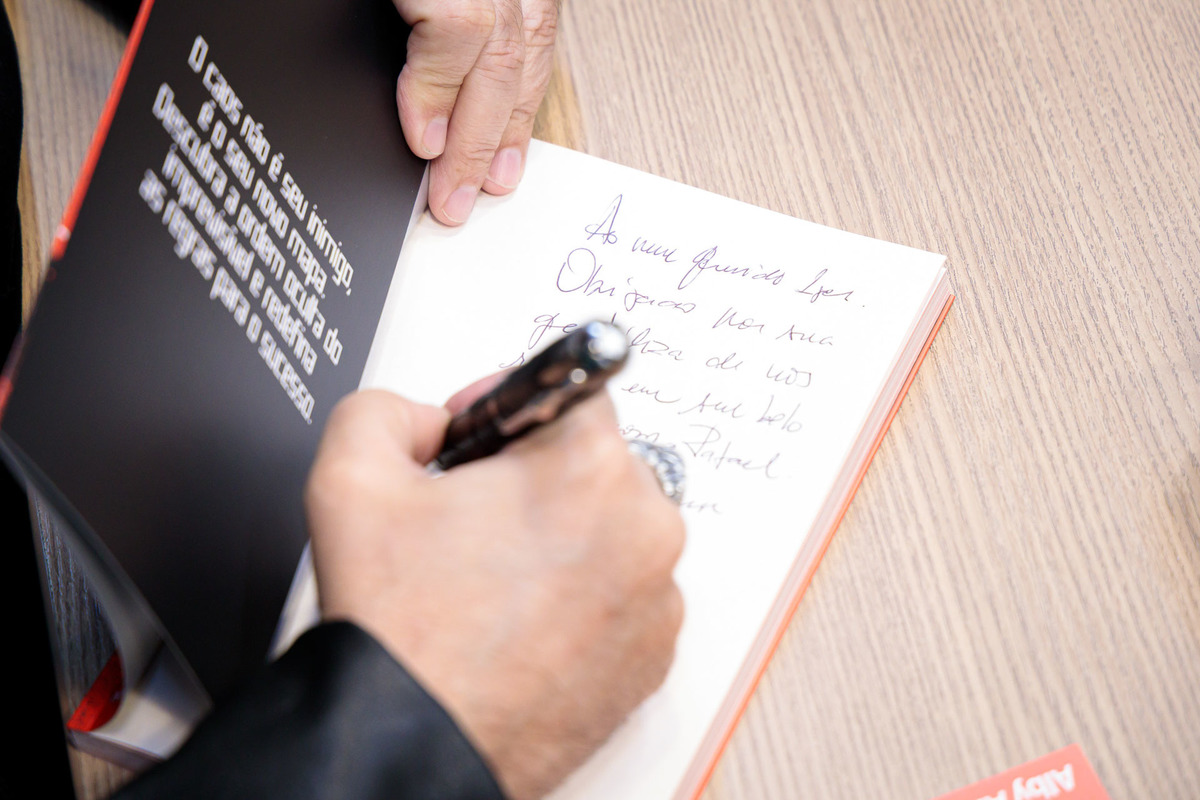 O caos não é seu inimigo,
é o seu novo mapa.
Descubra a ordem oculta do
imprevisível e redefina
as regras para o sucesso.
Ao meu Querido
Obrigado por sua
de nos
em seu belo
Rafael
Alby